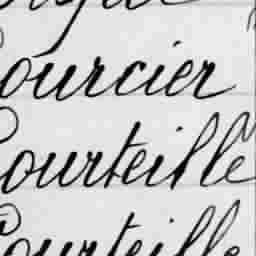 Courcier
Courteille
Courteille